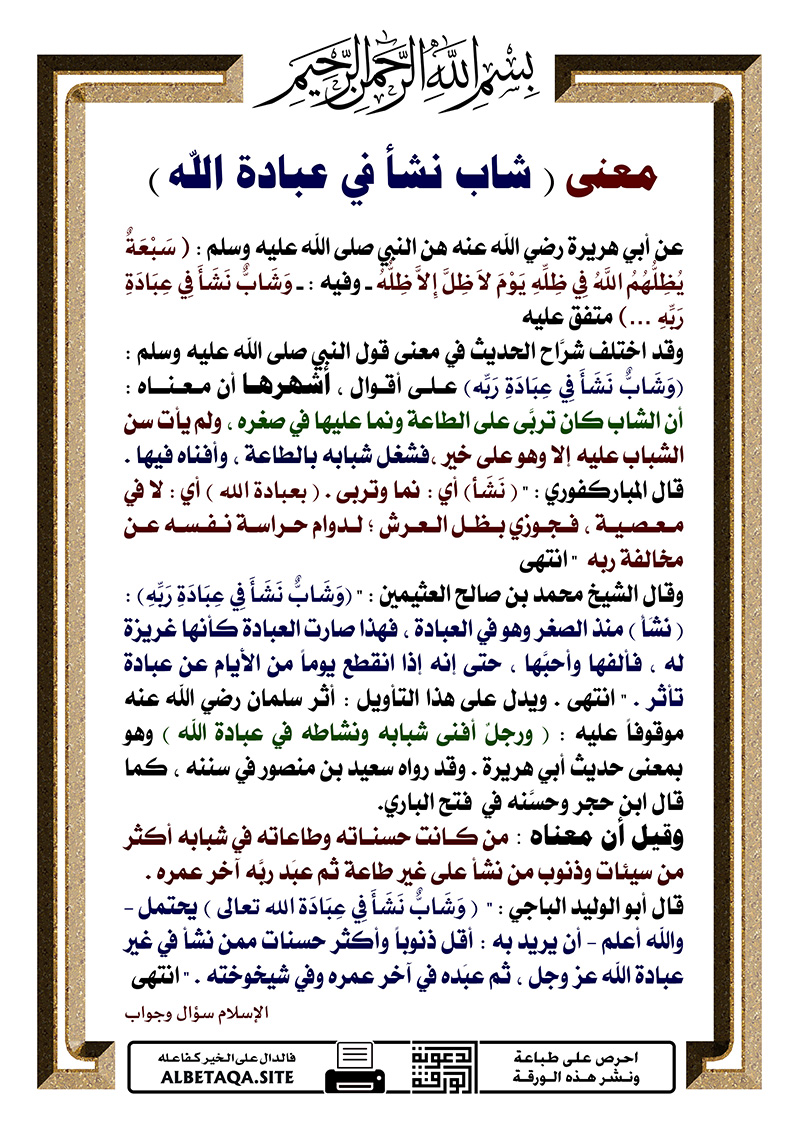 بِسْمِ اللَّهِ الرَّحْمَنِ الرَّحِيمِ
معنى ( شاب نشأ في عبادة الله )
عن أبي هريرة رضي الله عنه هن النبي صلى الله عليه وسلم : ( سَبْعَةٌ
يُظِلُّهُمُ اللَّهُ فِي ظِلِّهِ يَوْمَ لاَ ظِلَّ إِلاَّ ظِلُّهُ ـ وفيه : ـ وَشَابٌّ نَشَأَ فِي عِبَادَةِ
رَبِّهِ ...) متفق عليه
وقد اختلف شرَّاح الحديث في معنى قول النبي صلى الله عليه وسلم :
(وَشَابٌّ نَشَأَ فِي عِبَادَةِ رَبِّه) على أقوال ، أشهرها أن معناه :
أن الشاب كان تربَّى على الطاعة ونما عليها في صغره ، ولم يأت سن
الشباب عليه إلا وهو على خير ،فشغل شبابه بالطاعة ، وأفناه فيها .
قال المباركفوري : " ( نَشَأ) أي : نما وتربى . ( بعبادة الله ) أي : لا في
معصية ، فجوزي بظل العرش ؛ لدوام حراسة نفسه عن
مخالفة ربه " انتهى
وقال الشيخ محمد بن صالح العثيمين : " (وَشَابٌّ نَشَأَ فِي عِبَادَةِ رَبِّهِ) :
( نشَأ ) منذ الصغر وهو في العبادة ، فهذا صارت العبادة كأنها غريزة
له ، فألفها وأحبَّها ، حتى إنه إذا انقطع يوماً من الأيام عن عبادة
تأثر . " انتهى . ويدل على هذا التأويل : أثر سلمان رضي الله عنه
موقوفاً عليه : ( ورجلٌ أفنى شبابه ونشاطه في عبادة الله ) وهو
بمعنى حديث أبي هريرة . وقد رواه سعيد بن منصور في سننه ، كما
قال ابن حجر وحسَّنه في فتح الباري.
وقيل أن معناه : من كانت حسناته وطاعاته في شبابه أكثر
من سيئات وذنوب من نشأ على غير طاعة ثم عبَد ربَّه آخر عمره .
قال أبو الوليد الباجي : " ( وَشَابٌّ نَشَأَ فِي عِبَادَة الله تعالى ) يحتمل -
والله أعلم - أن يريد به : أقل ذنوباً وأكثر حسنات ممن نشأ في غير
عبادة الله عز وجل ، ثم عبَده في آخر عمره وفي شيخوخته . " انتهى
الإسلام سؤال وجواب
احرص على طباعة
ونشر هذه الورقة
الورقة الدعوية
فالدال على الخير كفاعله
ALBETAQA.SITE